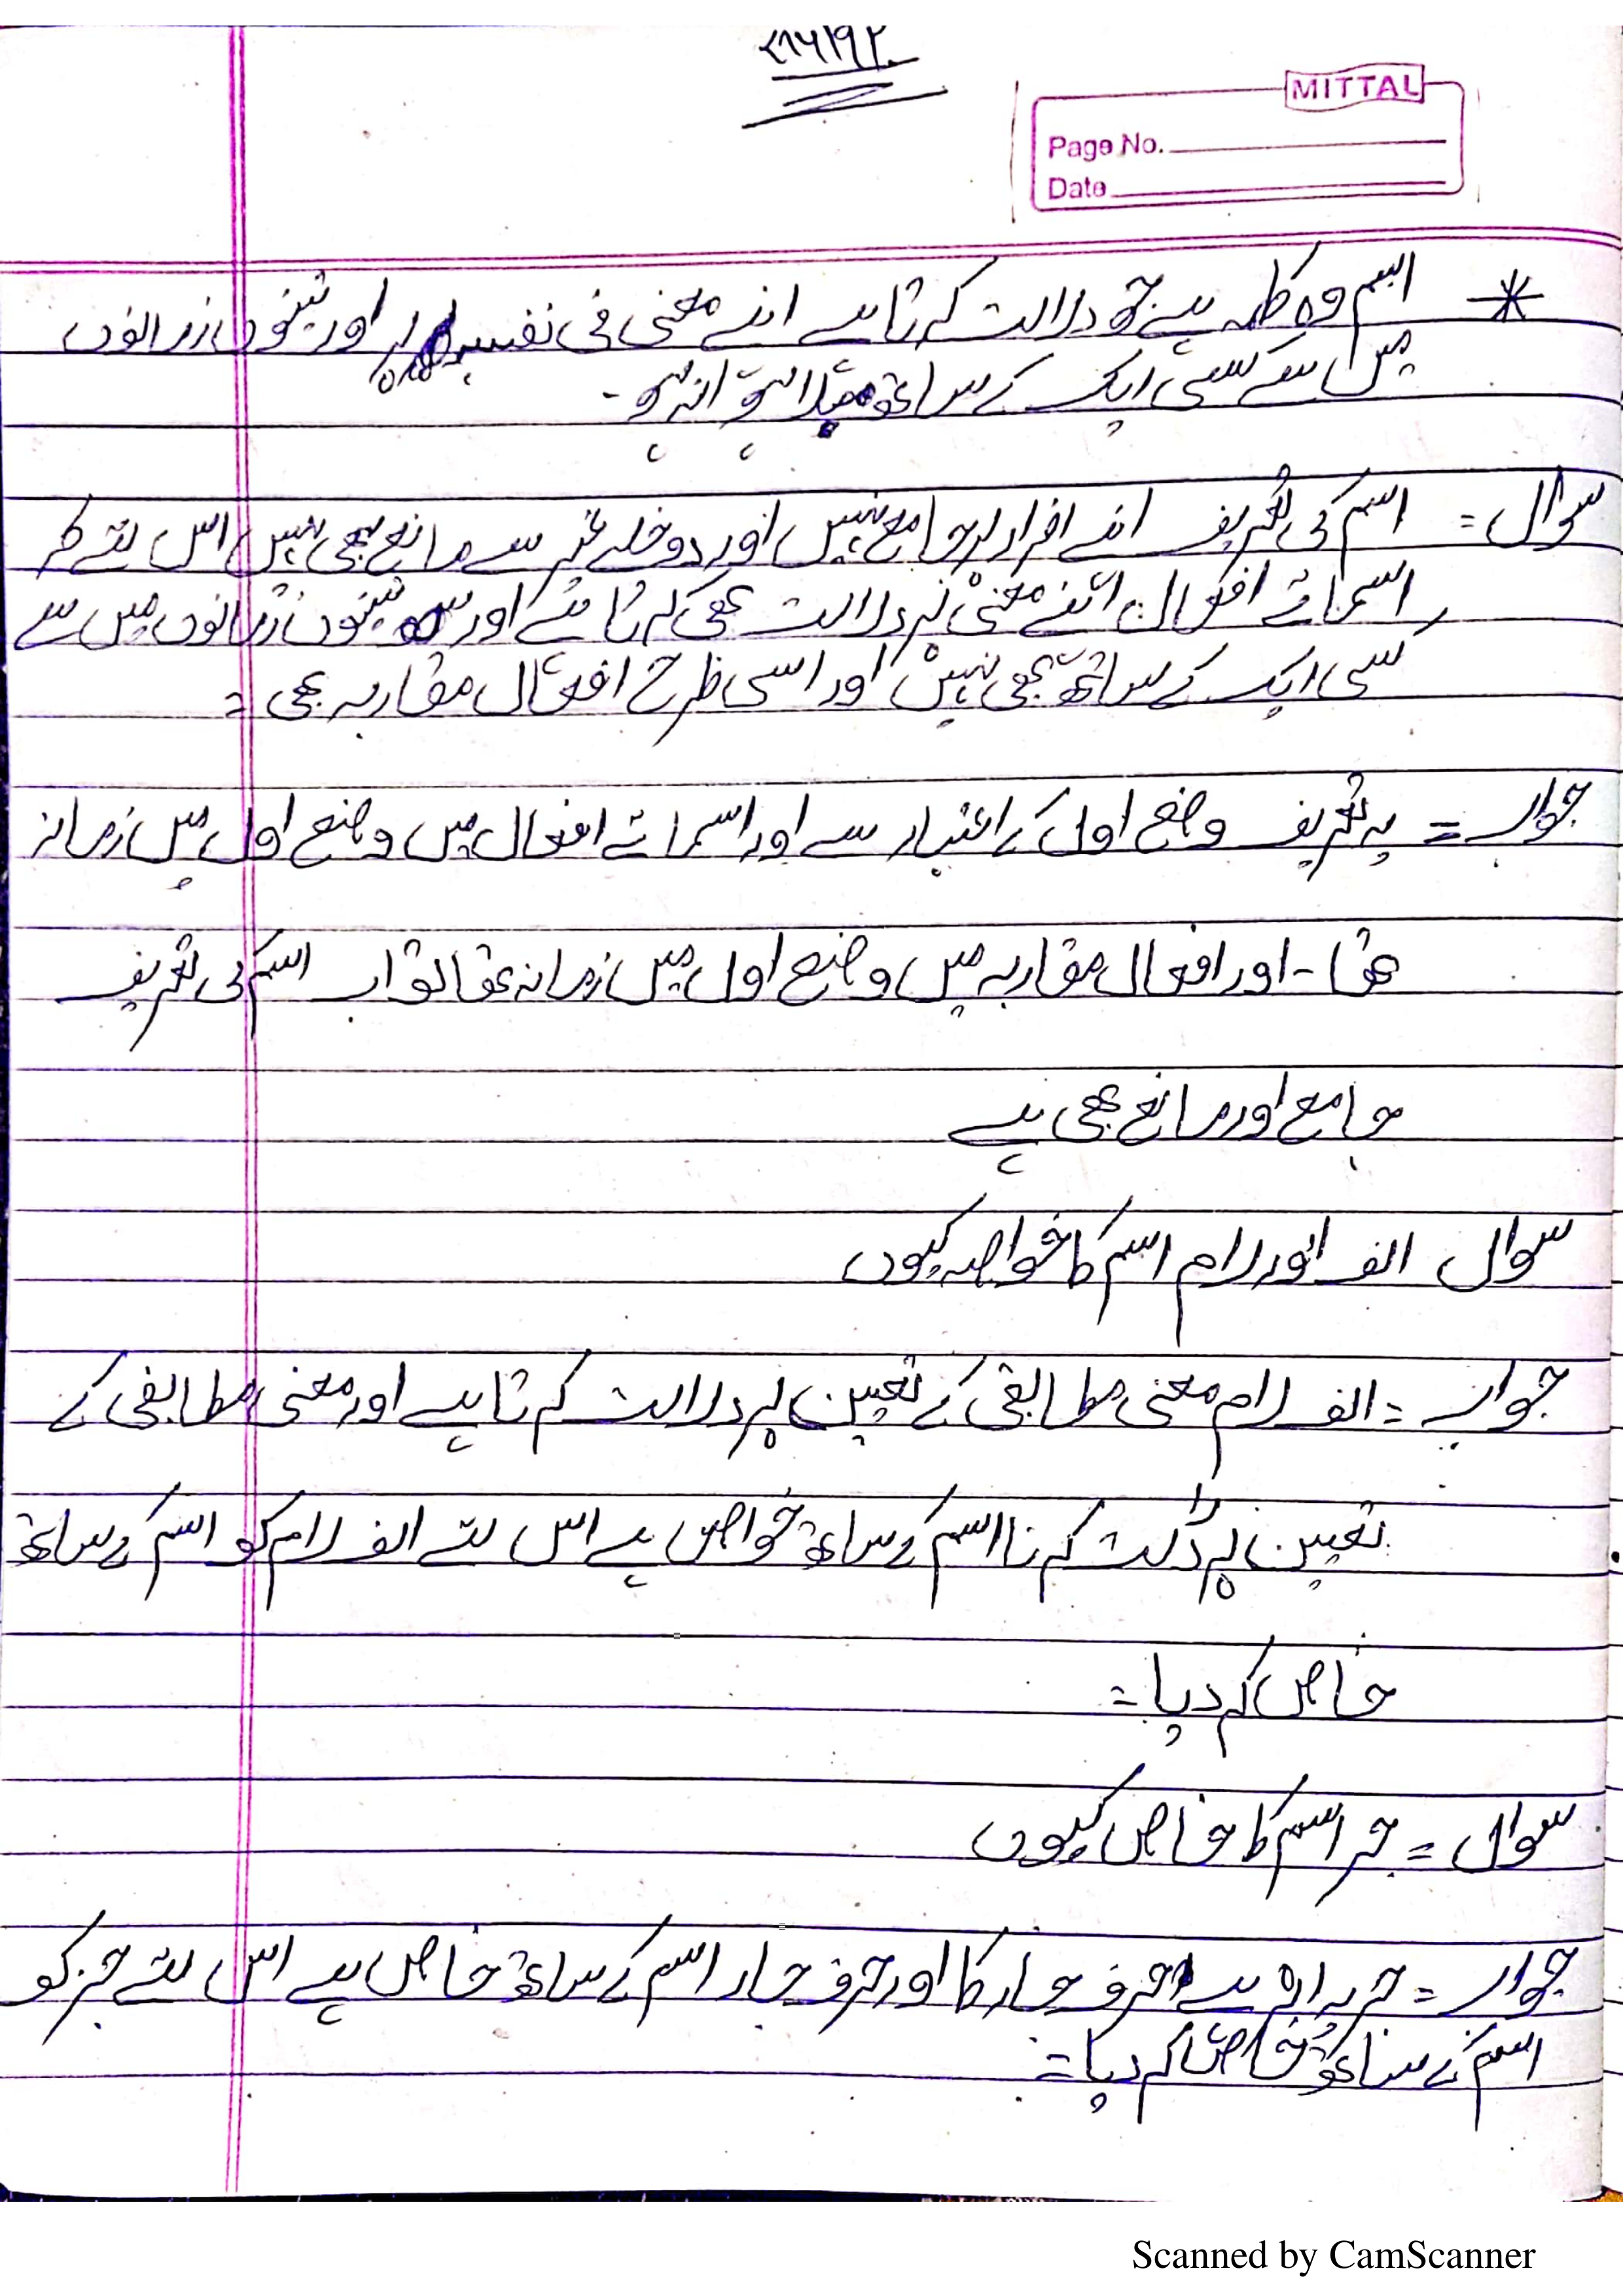 ۷۸۶/۹۲
MITTAL
Page No.
Date
* اسم وہ کلمہ ہے جو دلالت کرتا ہے اپنے معنی فی نفسہ پر اور تینوں زمانوں
میں سے کسی ایک کے ساتھ ملا ہوا نہ ہو۔
سوال = اسم کی تعریف اپنے افراد پر جامع نہیں اور دخول غیر سے مانع بھی نہیں اس لئے کہ
اسمائے افعال اپنے معنیٰ پر دلالت بھی کرتا ہے اور تینوں زمانوں میں سے
کسی ایک کے ساتھ بھی نہیں اور اسی طرح افعال مقاربہ بھی =
جواب = یہ تعریف وضع اول کے اعتبار سے اور اسمائے افعال میں وضع اول میں زمانہ
تھا - اور افعال مقاربہ میں وضع اول میں زمانہ تھا تو اب اسم کی تعریف
جامع اور مانع بھی ہے
سوال الف اور لام اسم کا خواصہ کیوں
جواب = الف لام معنی مطابقی کے تعین پر دلالت کرتا ہے اور معنی مطابقی کے
تعین پر دلالت کرنا اسم کے ساتھ خواص ہے اس لئے الف لام کو اسم کے ساتھ
خاص کر دیا =
سوال = جر اسم کا خاص کیوں
جواب = جر یہ اثر ہے حرف جار کا اور حرف جار اسم کے ساتھ خاص ہے اس لئے جر کو
اسم کے ساتھ خاص کر دیا =
Scanned by CamScanner